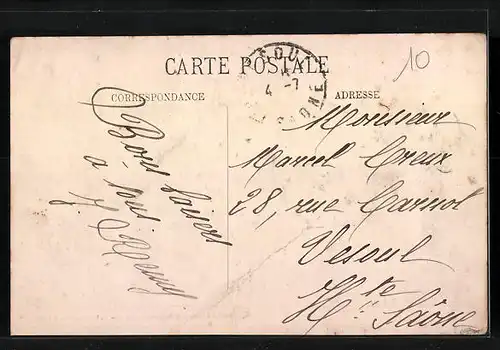 CARTE POSTALE
10
4 -7
CORRESPONDANCE
ADRESSE
Bons baisers
a
Monsieur
Marcel Creux
28, rue Carnot
Vesoul
Hte Saône